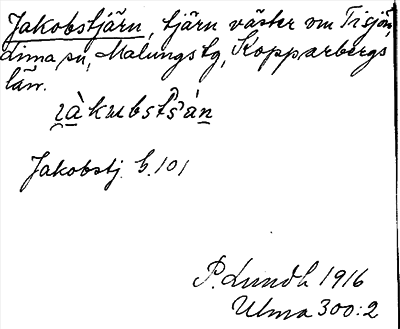 Jakobstjärn, tjärn väster om Tisjön,
Lima sn, Malungs tg, Kopparbergs
län.
Jakobstj. G. 101
P. Lundh 1916
Ulma 300:2